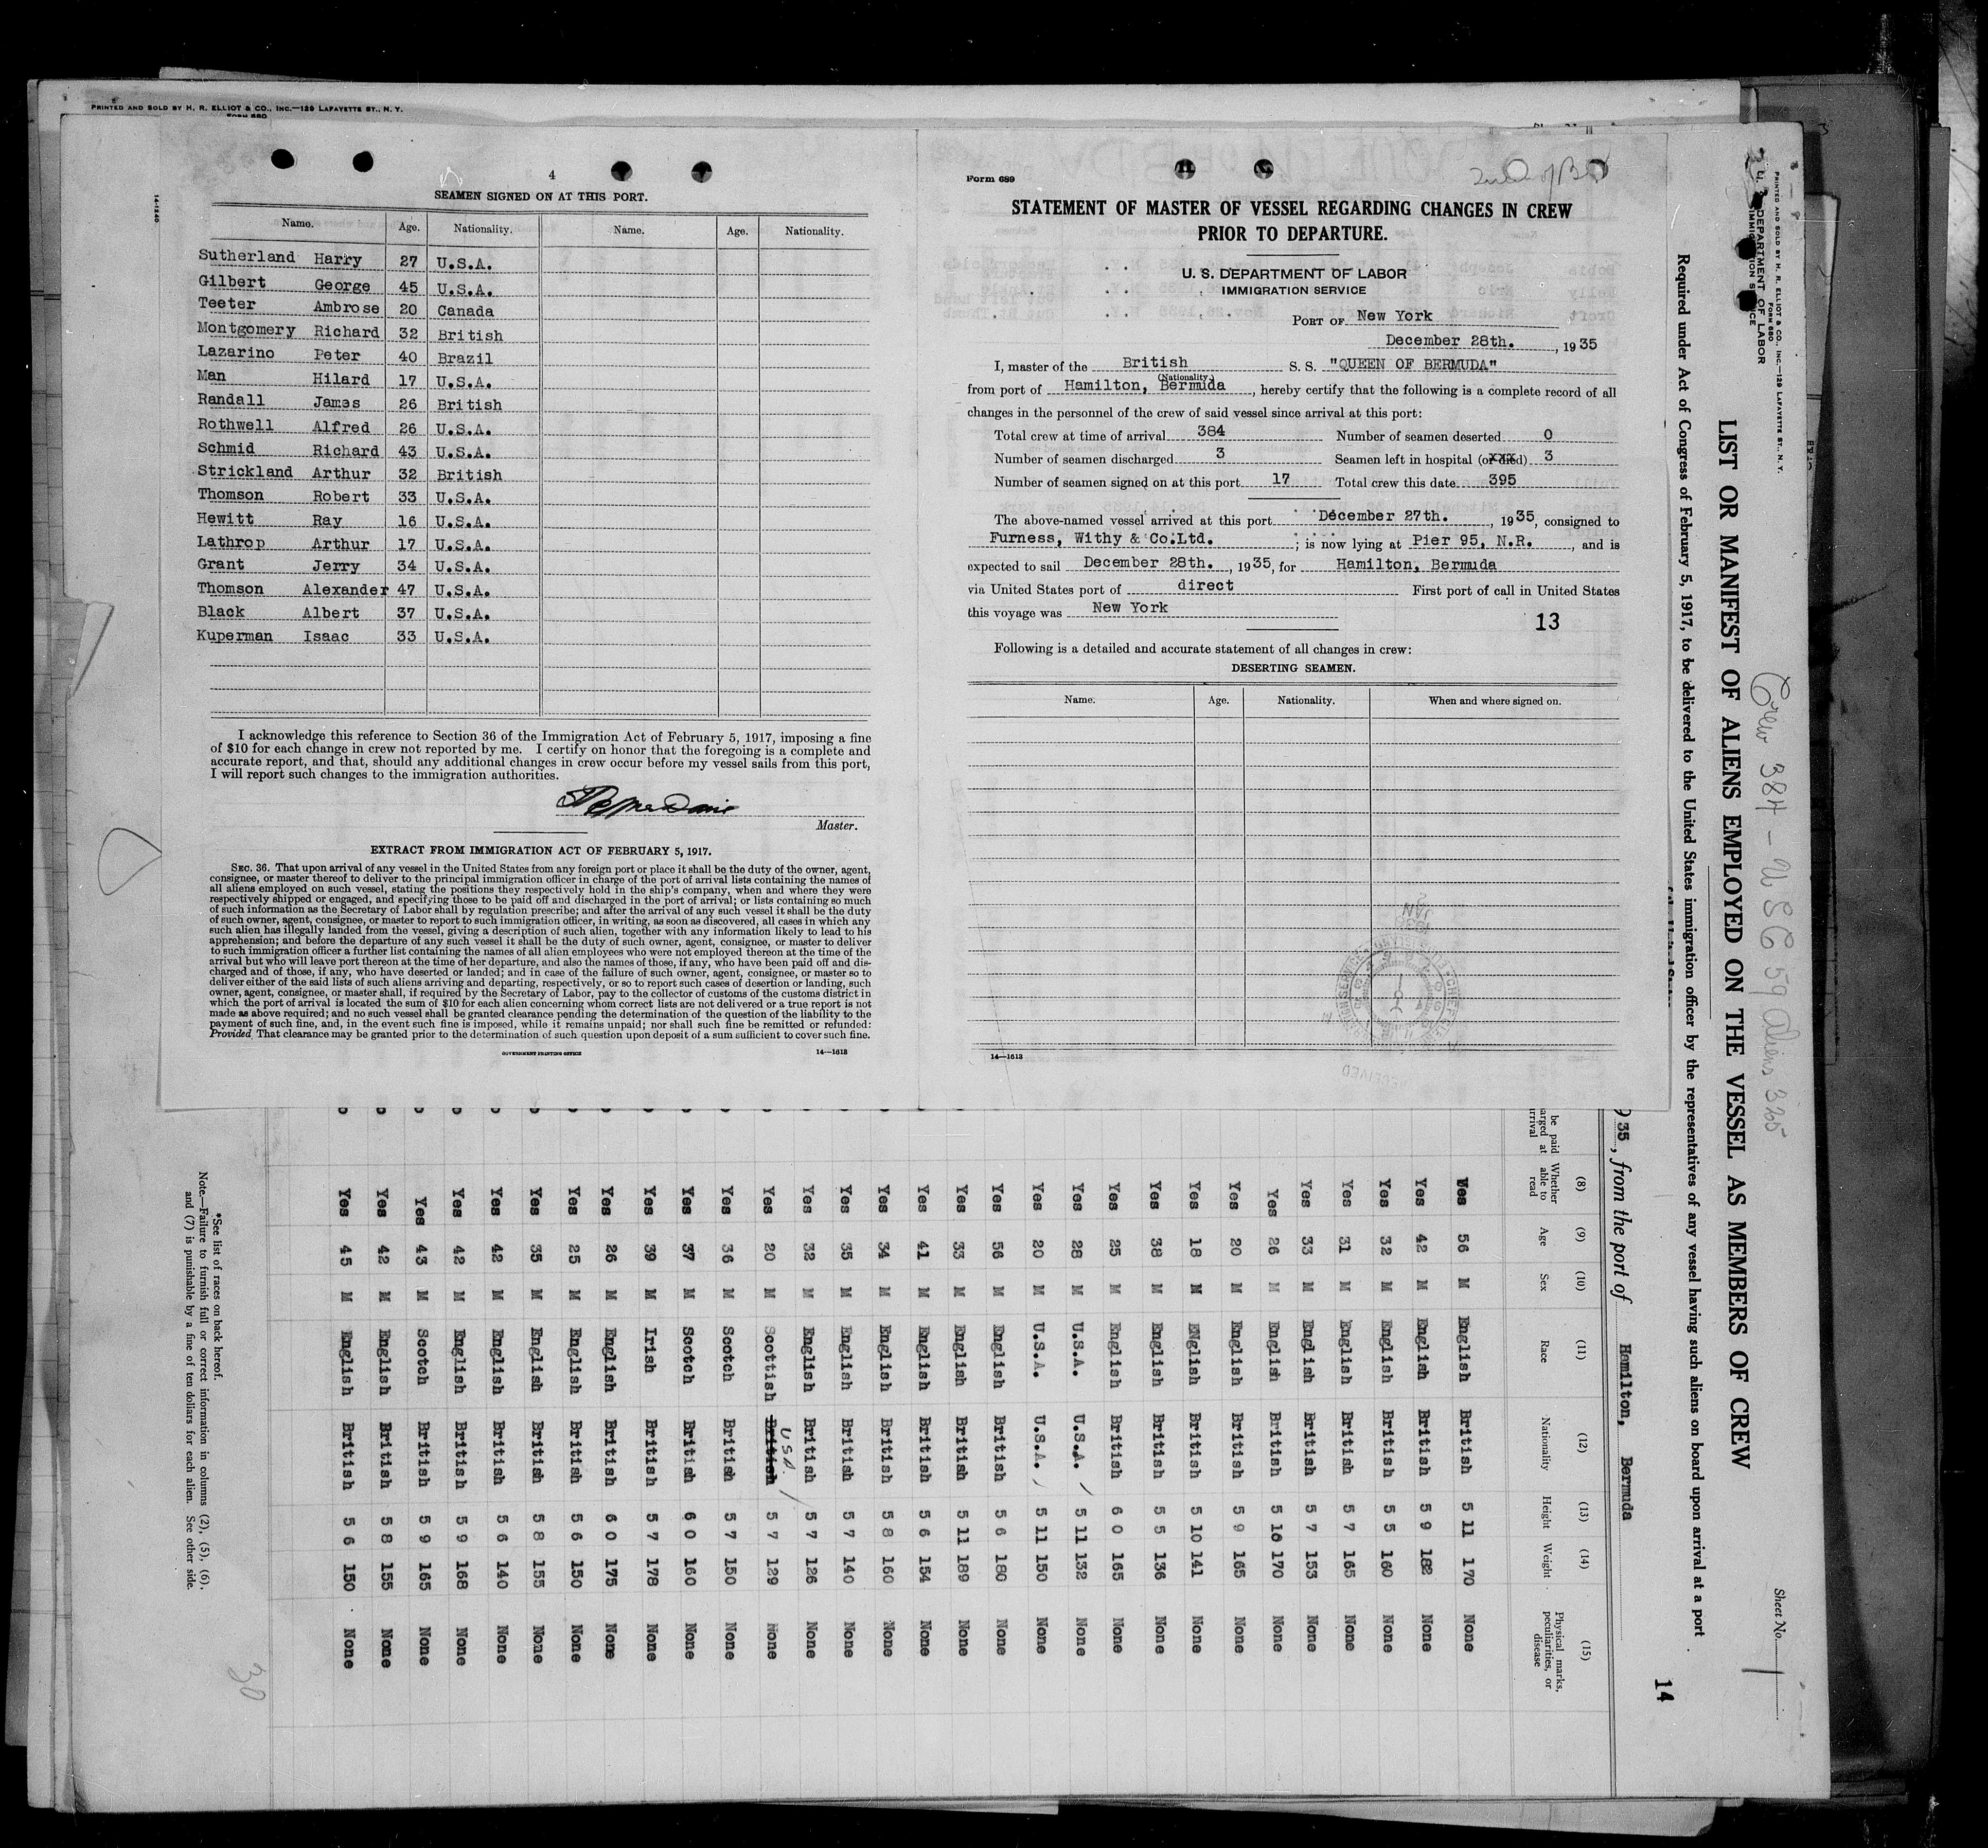 PRINTED AND SOLD BY H. R. ELLIOT & CO., INC.—129 LAFAYETTE ST., N. Y.
FORM 680
14-1240
4
SEAMEN SIGNED ON AT THIS PORT.
Name. Age. Nationality. Name. Age. Nationality.
Sutherland Harry 27 U.S.A.
Gilbert George 45 U.S.A.
Teeter Ambrose 20 Canada
Montgomery Richard 32 British
Lazarino Peter 40 Brazil
Man Hilard 17 U.S.A.
Randall James 26 British
Rothwell Alfred 26 U.S.A.
Schmid Richard 43 U.S.A.
Strickland Arthur 32 British
Thomson Robert 33 U.S.A.
Hewitt Ray 16 U.S.A.
Lathrop Arthur 17 U.S.A.
Grant Jerry 34 U.S.A.
Thomson Alexander 47 U.S.A.
Black Albert 37 U.S.A.
Kuperman Isaac 33 U.S.A.
I acknowledge this reference to Section 36 of the Immigration Act of February 5, 1917, imposing a fine
of $10 for each change in crew not reported by me. I certify on honor that the foregoing is a complete and
accurate report, and that, should any additional changes in crew occur before my vessel sails from this port,
I will report such changes to the immigration authorities.
Master.
EXTRACT FROM IMMIGRATION ACT OF FEBRUARY 5, 1917.
SEC. 36. That upon arrival of any vessel in the United States from any foreign port or place it shall be the duty of the owner, agent,
consignee, or master thereof to deliver to the principal immigration officer in charge of the port of arrival lists containing the names of
all aliens employed on such vessel, stating the positions they respectively hold in the ship's company, when and where they were
respectively shipped or engaged, and specifying those to be paid off and discharged in the port of arrival; or lists containing so much
of such information as the Secretary of Labor shall by regulation prescribe; and after the arrival of any such vessel it shall be the duty
of such owner, agent, consignee, or master to report to such immigration officer, in writing, as soon as discovered, all cases in which any
such alien has illegally landed from the vessel, giving a description of such alien, together with any information likely to lead to his
apprehension; and before the departure of any such vessel it shall be the duty of such owner, agent, consignee, or master to deliver
to such immigration officer a further list containing the names of all alien employees who were not employed thereon at the time of the
arrival but who will leave port thereon at the time of her departure, and also the names of those, if any, who have been paid off and dis-
charged and of those, if any, who have deserted or landed; and in case of the failure of such owner, agent, consignee, or master so to
deliver either of the said lists of such aliens arriving and departing, respectively, or so to report such cases of desertion or landing, such
owner, agent, consignee, or master shall, if required by the Secretary of Labor, pay to the collector of customs of the customs district in
which the port of arrival is located the sum of $10 for each alien concerning whom correct lists are not delivered or a true report is not
made as above required; and no such vessel shall be granted clearance pending the determination of the question of the liability to the
payment of such fine, and, in the event such fine is imposed, while it remains unpaid; nor shall such fine be remitted or refunded:
Provided, That clearance may be granted prior to the determination of such question upon deposit of a sum sufficient to cover such fine.
GOVERNMENT PRINTING OFFICE 14—1613
Form 689
STATEMENT OF MASTER OF VESSEL REGARDING CHANGES IN CREW
PRIOR TO DEPARTURE.
U. S. DEPARTMENT OF LABOR
IMMIGRATION SERVICE
PORT OF New York
December 28th. , 1935
I, master of the British S. S. "QUEEN OF BERMUDA"
(Nationality.)
from port of Hamilton, Bermuda , hereby certify that the following is a complete record of all
changes in the personnel of the crew of said vessel since arrival at this port:
Total crew at time of arrival 384 Number of seamen deserted 0
Number of seamen discharged 3 Seamen left in hospital (or died) 3
Number of seamen signed on at this port 17 Total crew this date 395
The above-named vessel arrived at this port December 27th. , 1935, consigned to
Furness, Withy & Co.Ltd. ; is now lying at Pier 95, N.R. , and is
expected to sail December 28th. , 1935, for Hamilton, Bermuda
via United States port of direct First port of call in United States
this voyage was New York
13
Following is a detailed and accurate statement of all changes in crew:
DESERTING SEAMEN.
Name. Age. Nationality. When and where signed on.
14—1613
PRINTED AND SOLD BY H. R. ELLIOT & CO., INC.—129 LAFAYETTE ST., N. Y.
FORM 680
U. S. DEPARTMENT OF LABOR
IMMIGRATION SERVICE
Crew 384 - USC 59 Aliens 325
Sheet No. 1
LIST OR MANIFEST OF ALIENS EMPLOYED ON THE VESSEL AS MEMBERS OF CREW
Required under Act of Congress of February 5, 1917, to be delivered to the United States immigration officer by the representatives of any vessel having such aliens on board upon arrival at a port
14
35, from the port of Hamilton, Bermuda
(8) (9) (10) (11) (12) (13) (14) (15)
Whether able to read Age Sex Race Nationality Height Weight Physical marks, peculiarities, or disease
Yes 56 M English British 5 11 170 None
Yes 42 M English British 5 9 182 None
Yes 32 M English British 5 5 160 None
Yes 31 M English British 5 7 165 None
Yes 33 M English British 5 7 153 None
Yes 26 M English British 5 10 170 None
Yes 20 M English British 5 9 165 None
Yes 18 M ENglish British 5 10 141 None
Yes 38 M English British 5 5 136 None
Yes 25 M English British 6 0 165 None
Yes 28 M U.S.A. U.S.A. 5 11 132 None
Yes 20 M U.S.A. U.S.A. 5 11 150 None
Yes 56 M English British 5 6 180 None
Yes 33 M English British 5 11 189 None
Yes 41 M English British 5 6 154 None
Yes 34 M English British 5 8 160 None
Yes 35 M English British 5 7 140 None
Yes 32 M English British 5 7 126 None
Yes 20 M Scottish British USA. 5 7 129 None
Yes 36 M Scotch British 5 7 150 None
Yes 37 M Scotch British 6 0 160 None
Yes 39 M Irish British 5 7 178 None
Yes 26 M English British 6 0 175 None
Yes 25 M English British 5 6 150 None
Yes 35 M English British 5 8 155 None
Yes 42 M English British 5 6 140 None
Yes 42 M English British 5 9 168 None
Yes 43 M Scotch British 5 9 165 None
Yes 42 M English British 5 8 155 None
Yes 45 M English British 5 6 150 None
*See list of races on back hereof.
Note.—Failure to furnish full or correct information in columns (2), (5), (6),
and (7) is punishable by a fine of ten dollars for each alien. See other side.
30